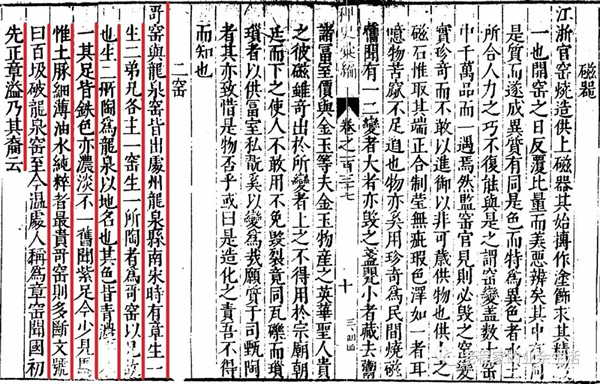 磁器
江浙官窑燒造供上磁器其始摶作塗飾求其
一也開窑之日反覆比量而美惡辨矣其中有同
是質而遂成異質有同是色而特為異色者水土
所合人力之巧不復能與是之謂窑變蓋數十窑
中千萬品而一遇焉然監窑官見則必毁之窑變
實珍奇而不敢以進御以非可歲供物也供上之
磁石惟取其端正合制瑩無疵瑕色澤如一者耳
噫物苦窳不足道也物亦奚用珍奇為民間燒磁
舊聞有一二變者大者亦毁之盞甖小者藏去鬻
史彙編 卷之百三七 十
諸富室價與金玉等夫金玉物産之英華聖人貴
之彼磁雖奇出於所變者上之不得用於宗廟朝
廷而下之使人不敢用不免毁裂竟同瓦礫而瑣
瑣者以供富室私翫奚以變為我願質于司甄
者其亦致惜是物否乎或曰是造化之責吾不得
而知也
二窑
哥窑與龍泉窑皆出處州龍泉縣南宋時有章生一
生二弟兄各主一窑生一所陶者為哥窑以兄故
也生二所陶為龍泉以地名也其色皆青濃
一其足皆鐵色亦濃淡不一舊聞紫足今少見焉
惟土脉細薄油水純粹者最貴哥窑則多斷文號
曰百圾破龍泉窑至今温處人稱為章窑聞國初
先正章溢乃其裔云